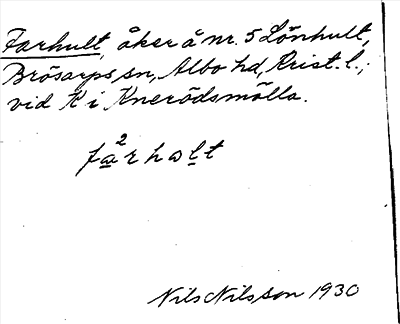 Farhult, åker å nr. 5 Lönhult,
Brösarps sn, Albo hd, Krist. l.;
vid K i Knerödsmölla.
fa²rhult
Nils Nilsson 1930